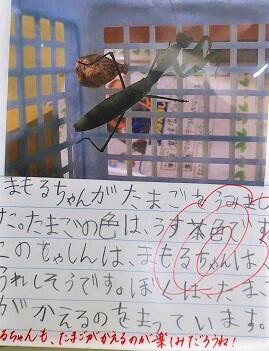 まもるちゃんがたまごをうみまし
た。たまごの色は、うす茶色です
このもゃしんは、まもるちゃんは、
うれしそうです。ぼくは、たま
がかえるのをまっています。
るちゃんも、たまごがかえるのが楽しみだろうね!